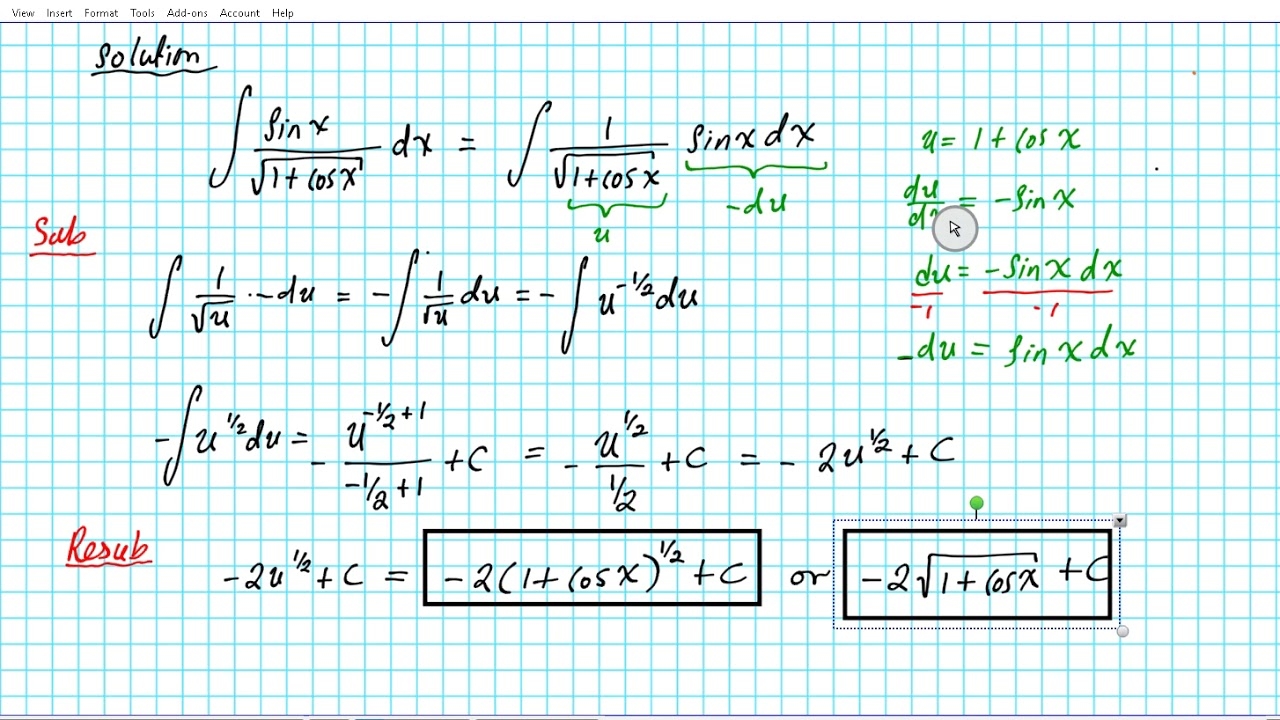 View Insert Format Tools Add-ons Account Help
Solution
∫ sin x / √(1 + cos x) dx = ∫ 1 / √(1 + cos x) sin x dx
u
-du
u = 1 + cos x
du/dx = -sin x
du = -sin x dx
-1 -1
-du = sin x dx
Sub
∫ 1/√u · -du = -∫ 1/√u du = -∫ u^(-1/2) du
-∫ u^(1/2) du = - u^(-1/2 + 1) / (-1/2 + 1) + C = - u^(1/2) / (1/2) + C = - 2u^(1/2) + C
Resub
-2u^(1/2) + C = -2(1 + cos x)^(1/2) + C or -2√(1 + cos x) + C